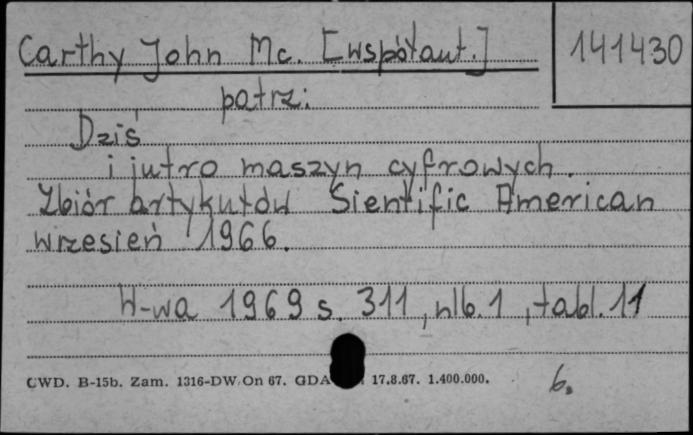 Carthy John Mc. [współaut.]
141430
patrz:
Dziś
i jutro maszyn cyfrowych.
Zbiór artykułów Sientific American
wrzesień 1966.
W-wa 1969 s. 311, nlb. 1, tabl. 11
CWD. B-15b. Zam. 1316-DW/On 67. GDA 17.8.67. 1.400.000.
6.